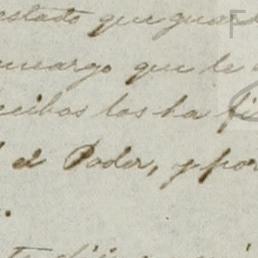 estado que guar
encargo que le
recibos los ha fi
el Poder, y por